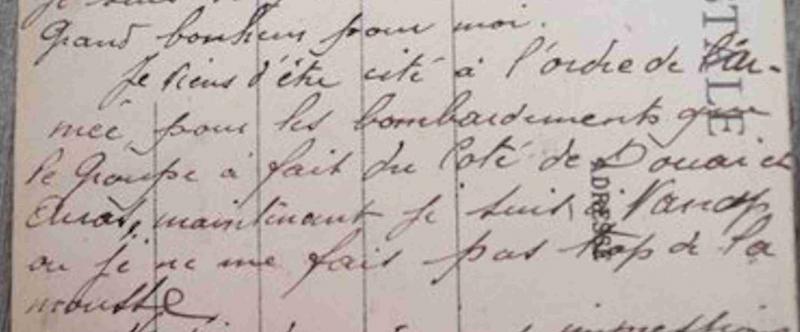 Je suis
Grand bonheur pour moi.
Je viens d'être cité à l'ordre de l'ar-
meé, pour les bombardements que
le Groupe à fait du Coté de Douai et
maintenant je suis à Nancy
ou je ne me fais pas trop de la
mousse
STALE
ADRESSE